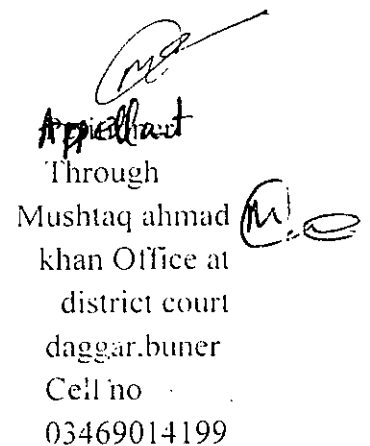 Appellant
Through
Mushtaq ahmad
khan Office at
district court
daggar.buner
Cell no
03469014199